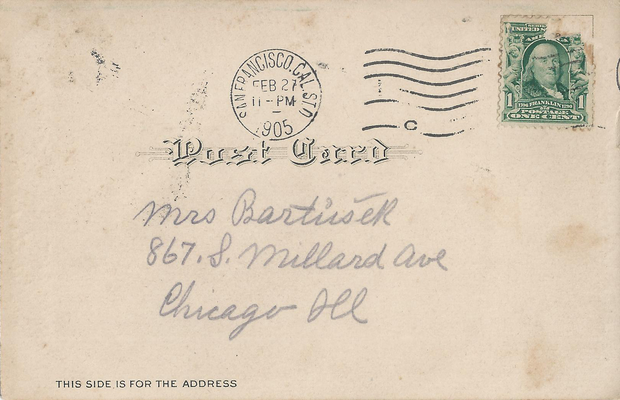 SAN FRANCISCO, CAL. STA.
FEB 27
11-PM
1905
C
UNITED S
AMERICA
1 FRANKLIN 1
POSTAGE
ONE CENT
Post Card
Mrs Bartůšek
867. S. Millard Ave
Chicago Ill
THIS SIDE IS FOR THE ADDRESS